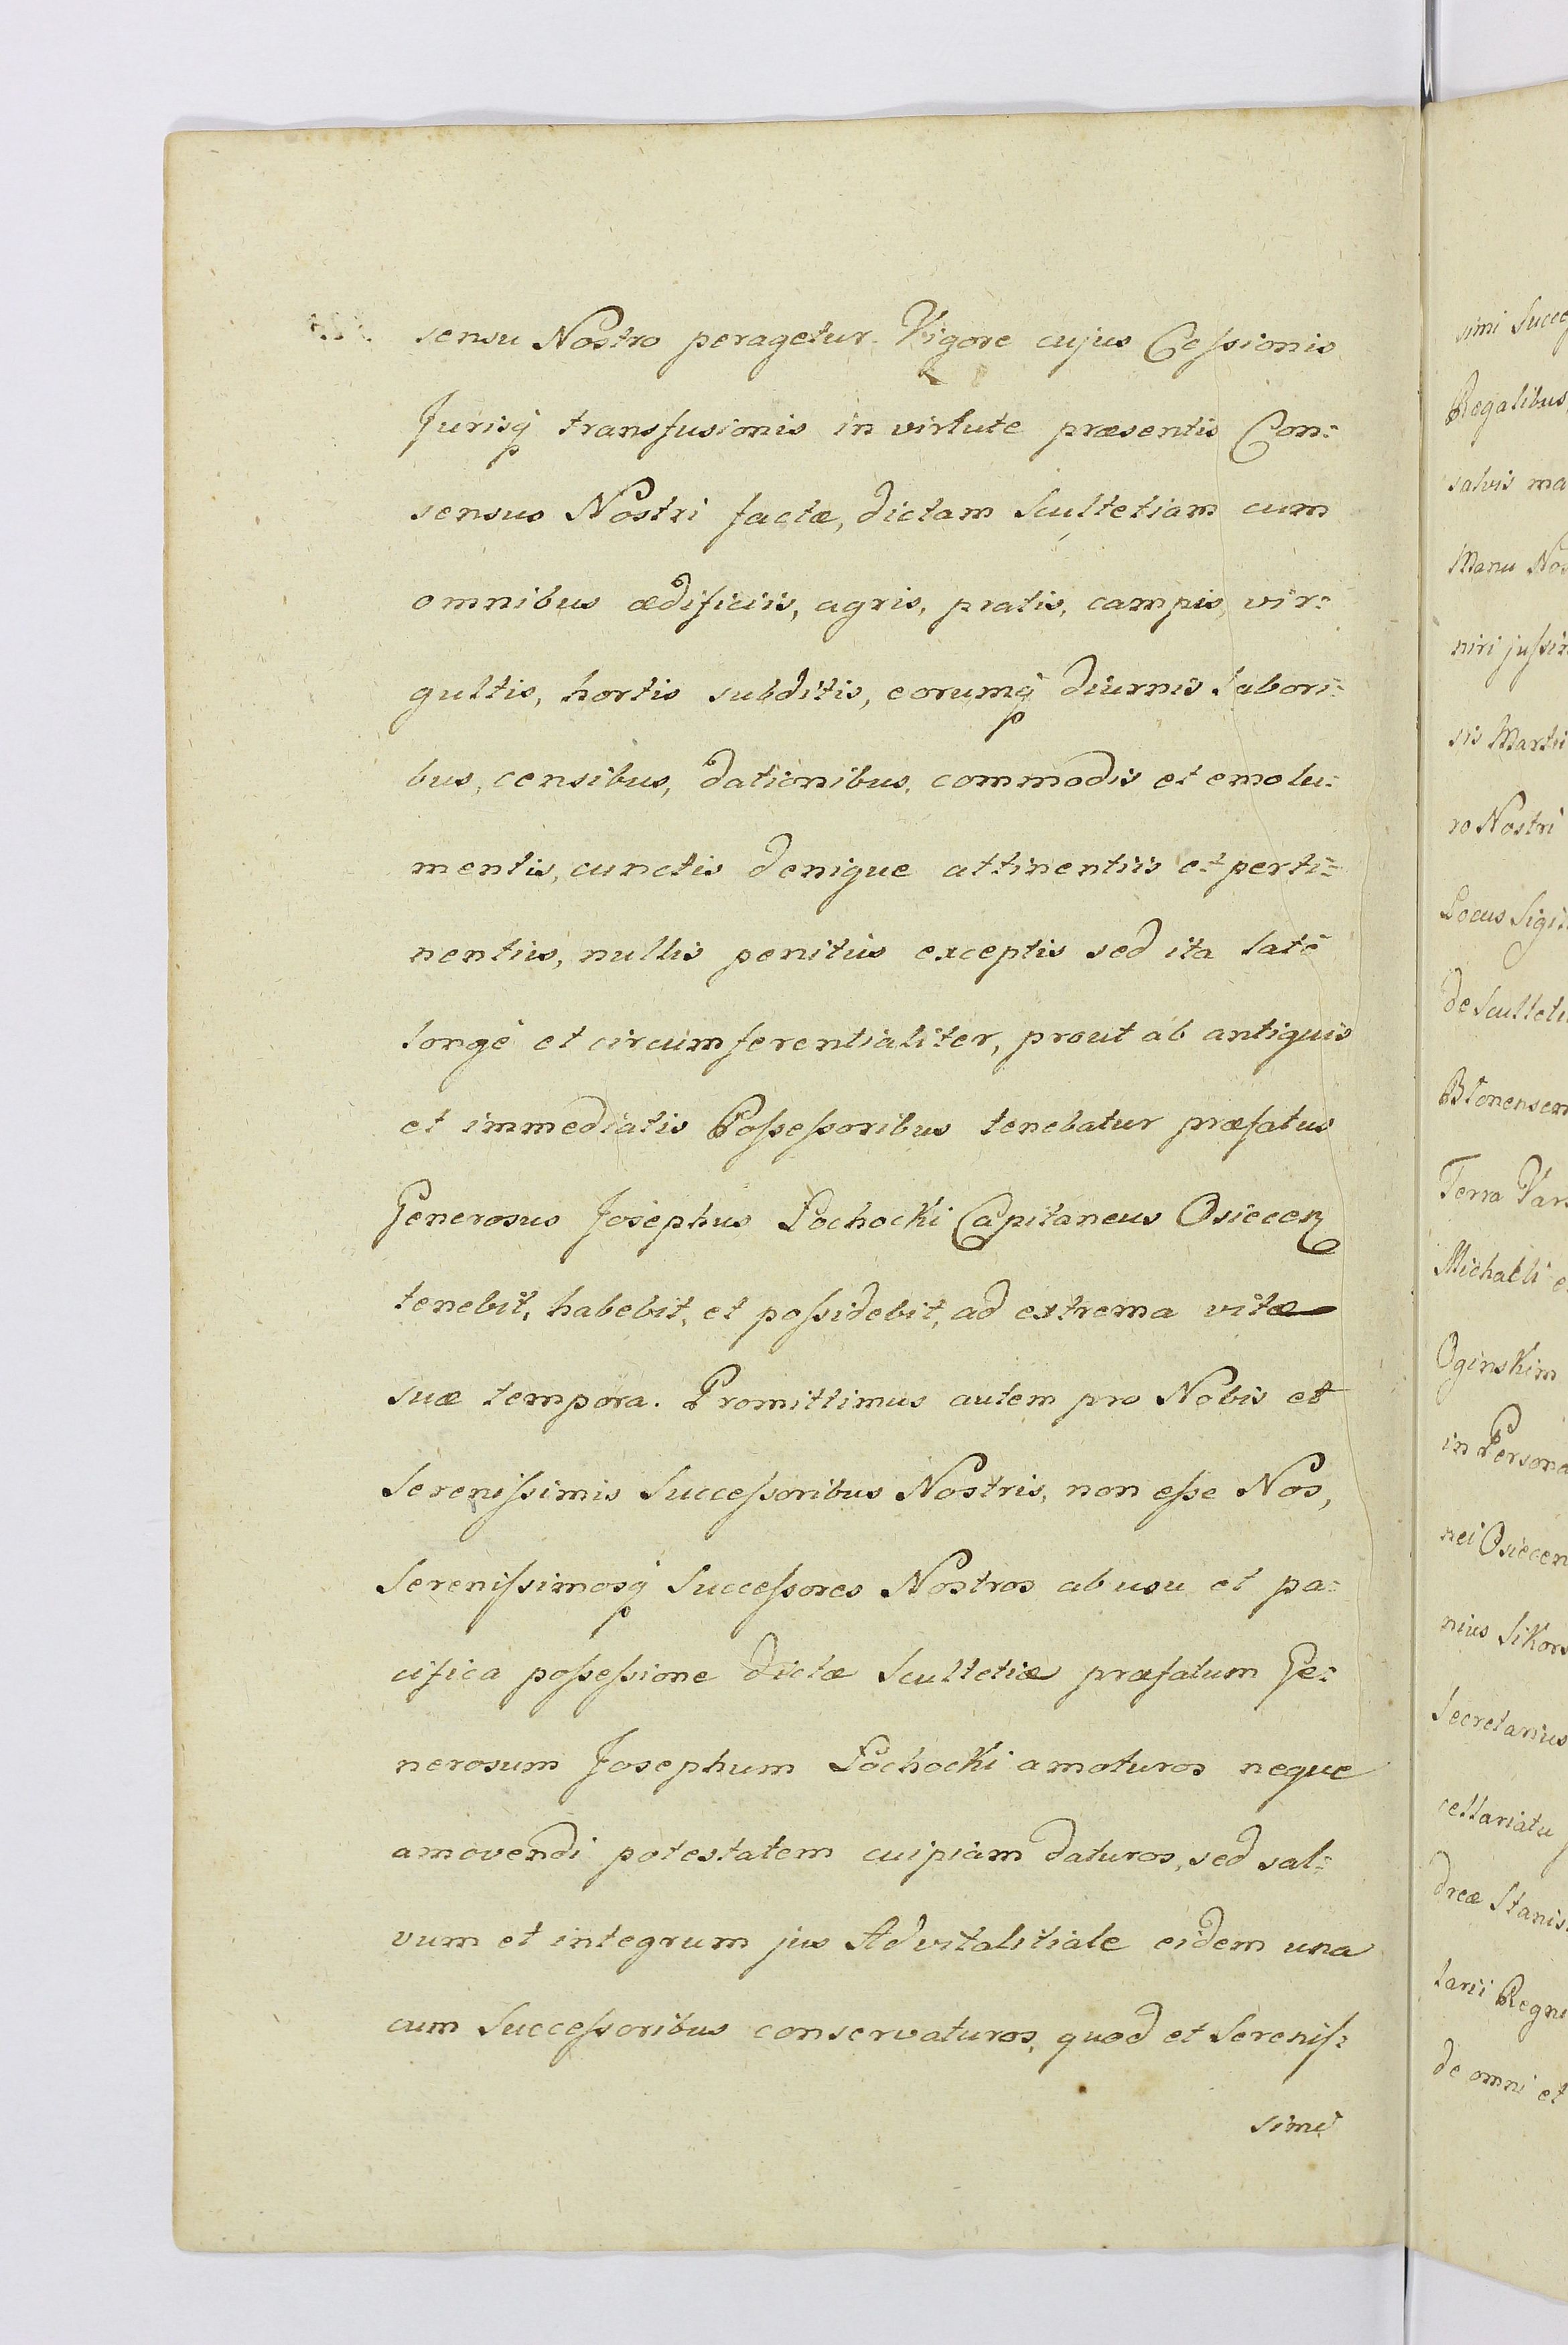 sensu Nostro peragetur. Vigore cujus Ceſsionis
Jurisq̃ transfusionis in virtute præsentis Con=
sensus Nostri factæ, dictam Scultetiam cum
omnibus ædificiis, agris, pratis, campis, vir=
gultis, hortis subditis, eorumq̃ diurnis labori=
bus, censibus, dationibus, commodis et emolu=
mentis, cunctis denique attinentiis et perti=
nentiis, nullis penitùs exceptis sed ita latè
longè et circumferentialiter, prout ab antiquis
et immediatis Poſseſsoribus tenebatur præfatus
Generosus Josephus Lochocki Capitaneus Osiecen
tenebit, habebit, et poſsidebit, ad extrema vitæ
suæ tempora. Promittimus autem pro Nobis et
Sereniſsimis Succeſsoribus Nostris, non eſse Nos,
Sereniſsimosq̃ Succeſsores Nostros ab usu et pa=
cifica poſseſsione dictæ Scultetiæ præfatum Ge=
nerosum Josephum Lochocki amoturos neque
amovendi potestatem cuipiam daturos, sed sal=
vum et integrum jus Advitalitiale eidem una
cum Succeſsoribus conservaturos, quod et Sereniſ=
simi
simi Succeſ
Regalibus
salvis ma
Manu Nos
niri juſsi
sis Martii
ro Nostri
Locus Sigil
de Sculteti
Blonensem
Terra Vars
Michaeli e
Oginskim
in Persona
nei Osiecen
nius Sikors
Secretarius
cellariatu
dreæ Stanis
larii Regni
de omni et